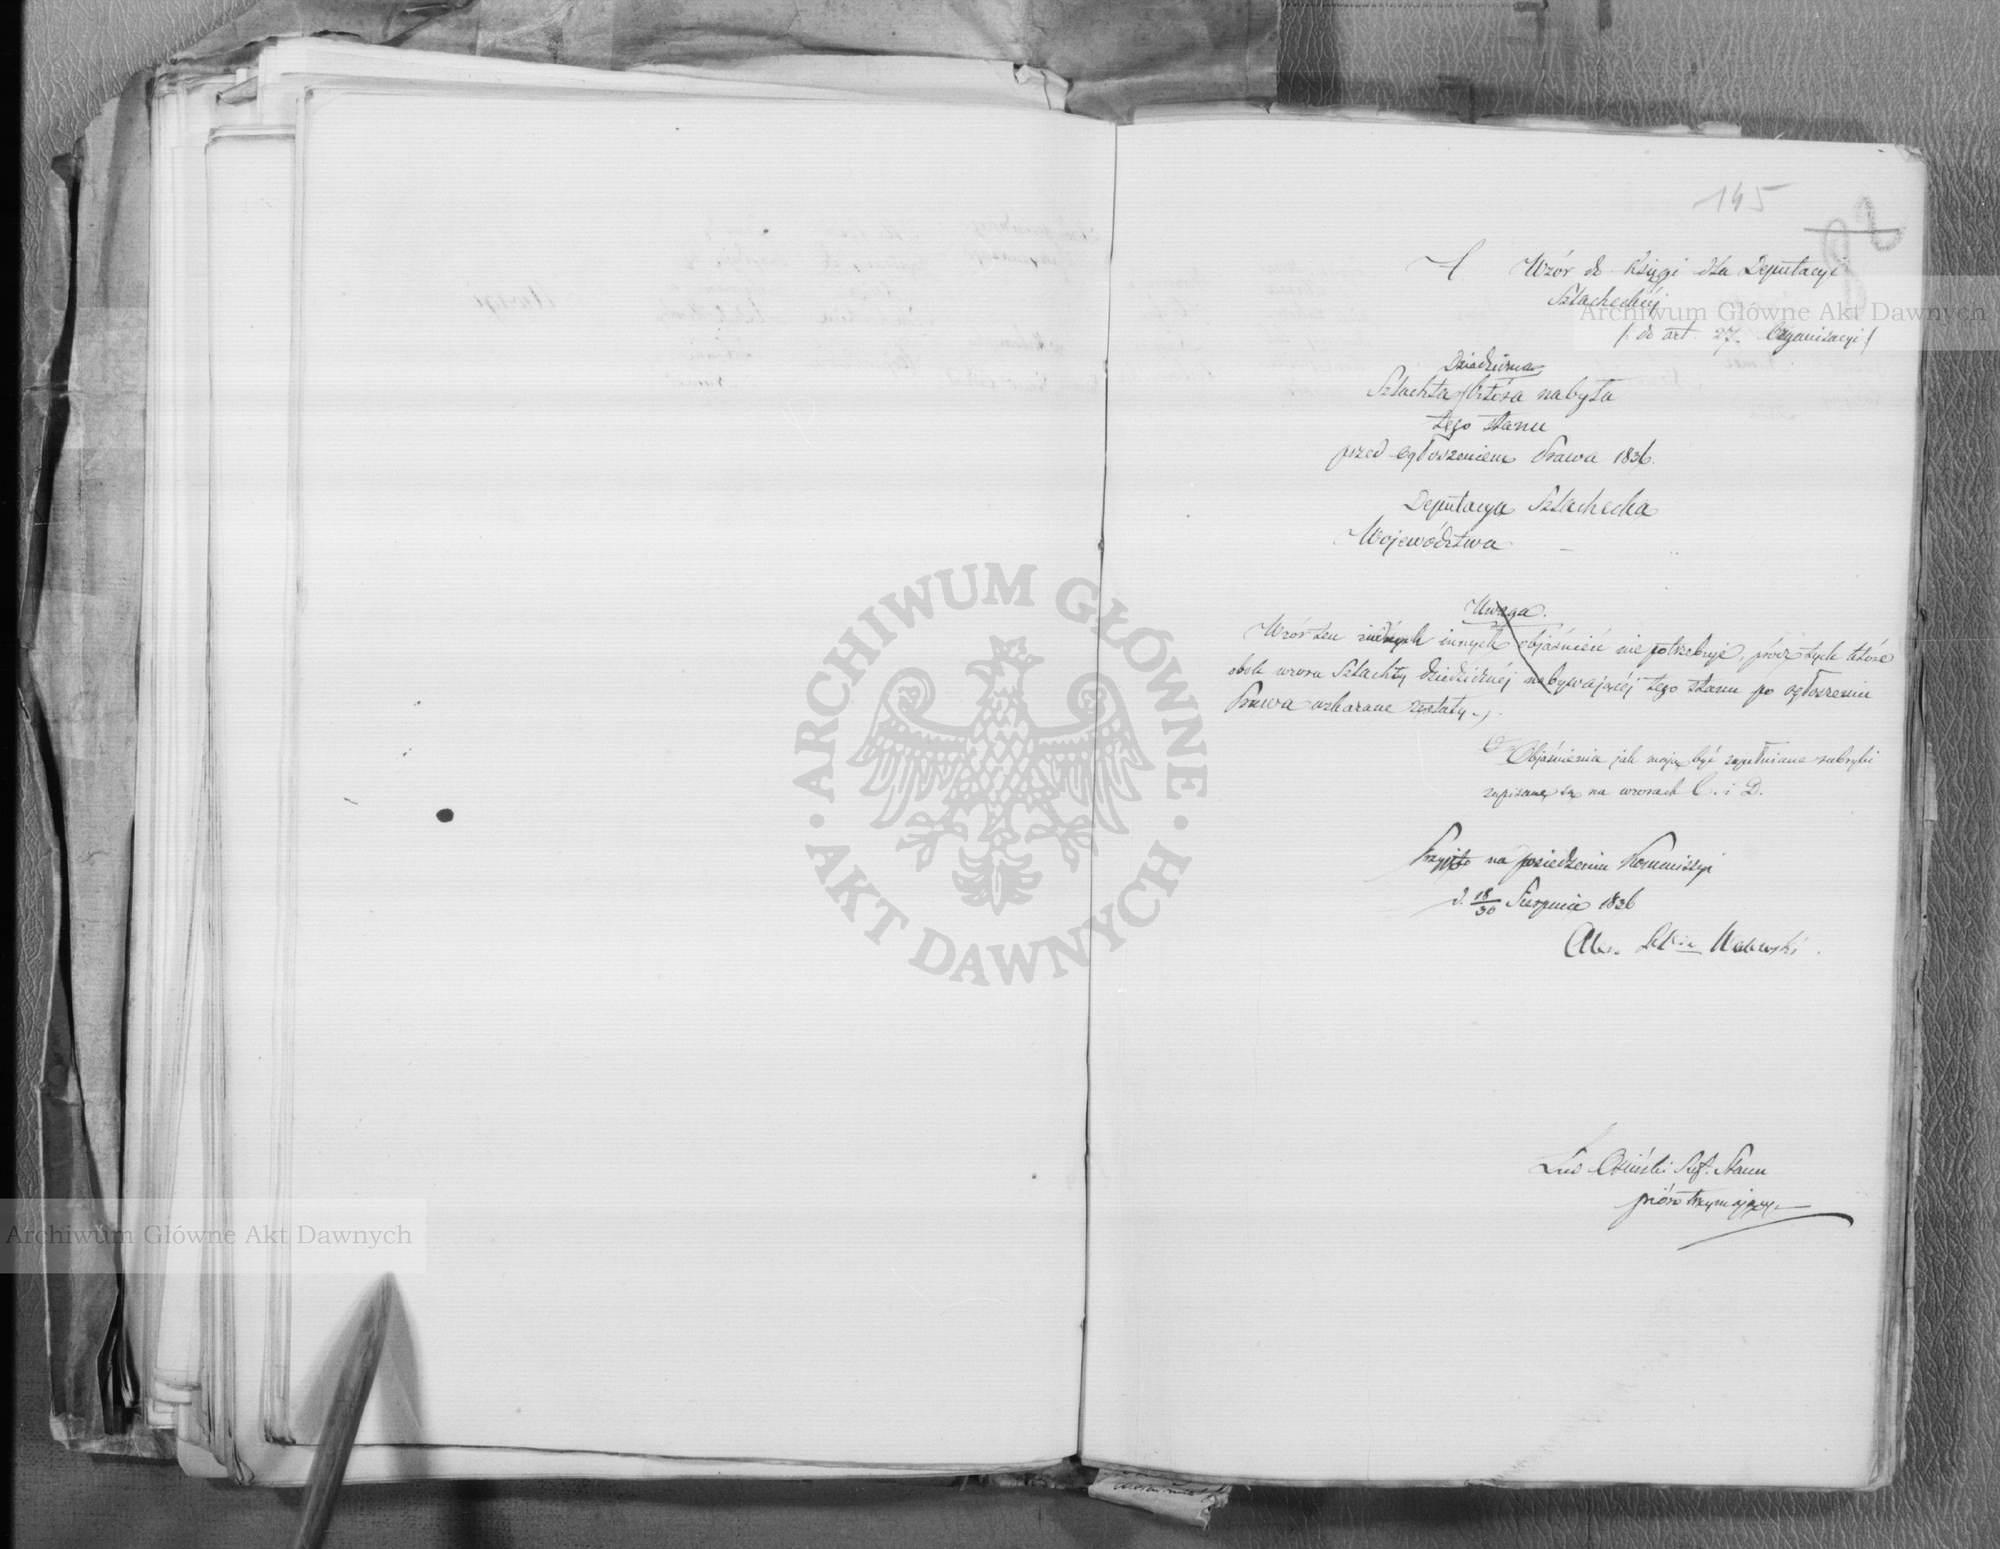 145
82
A. Wzór do Księgi dla Deputacyi
Szlacheckiéj
/: do art. 27. Organizacyi :/
Dziedziczna
Szlachta która nabyła
tego stanu
przed ogłoszeniem Prawa 1836.
Deputacya Szlachecka
Województwa
Uwaga.
Wzór ten żadnych innych objaśnień nie potrzebuje, prócz tych które
obok wzoru Szlachty dziedzicznéj nabywającéj tego stanu po ogłoszeniu
Prawa wskazane zostały
Objaśnienia jak mają być zapełniane rubryki
zapisane są na wzorach C. i D.
Przyjęto na posiedzeniu Kommissyi
d. 18/30 Sierpnia 1836
Alex. Walewski
Osiński Ref. Stanu
pióro trzymający
ARCHIWUM GŁÓWNE AKT DAWNYCH
Archiwum Główne Akt Dawnych
Archiwum Główne Akt Dawnych